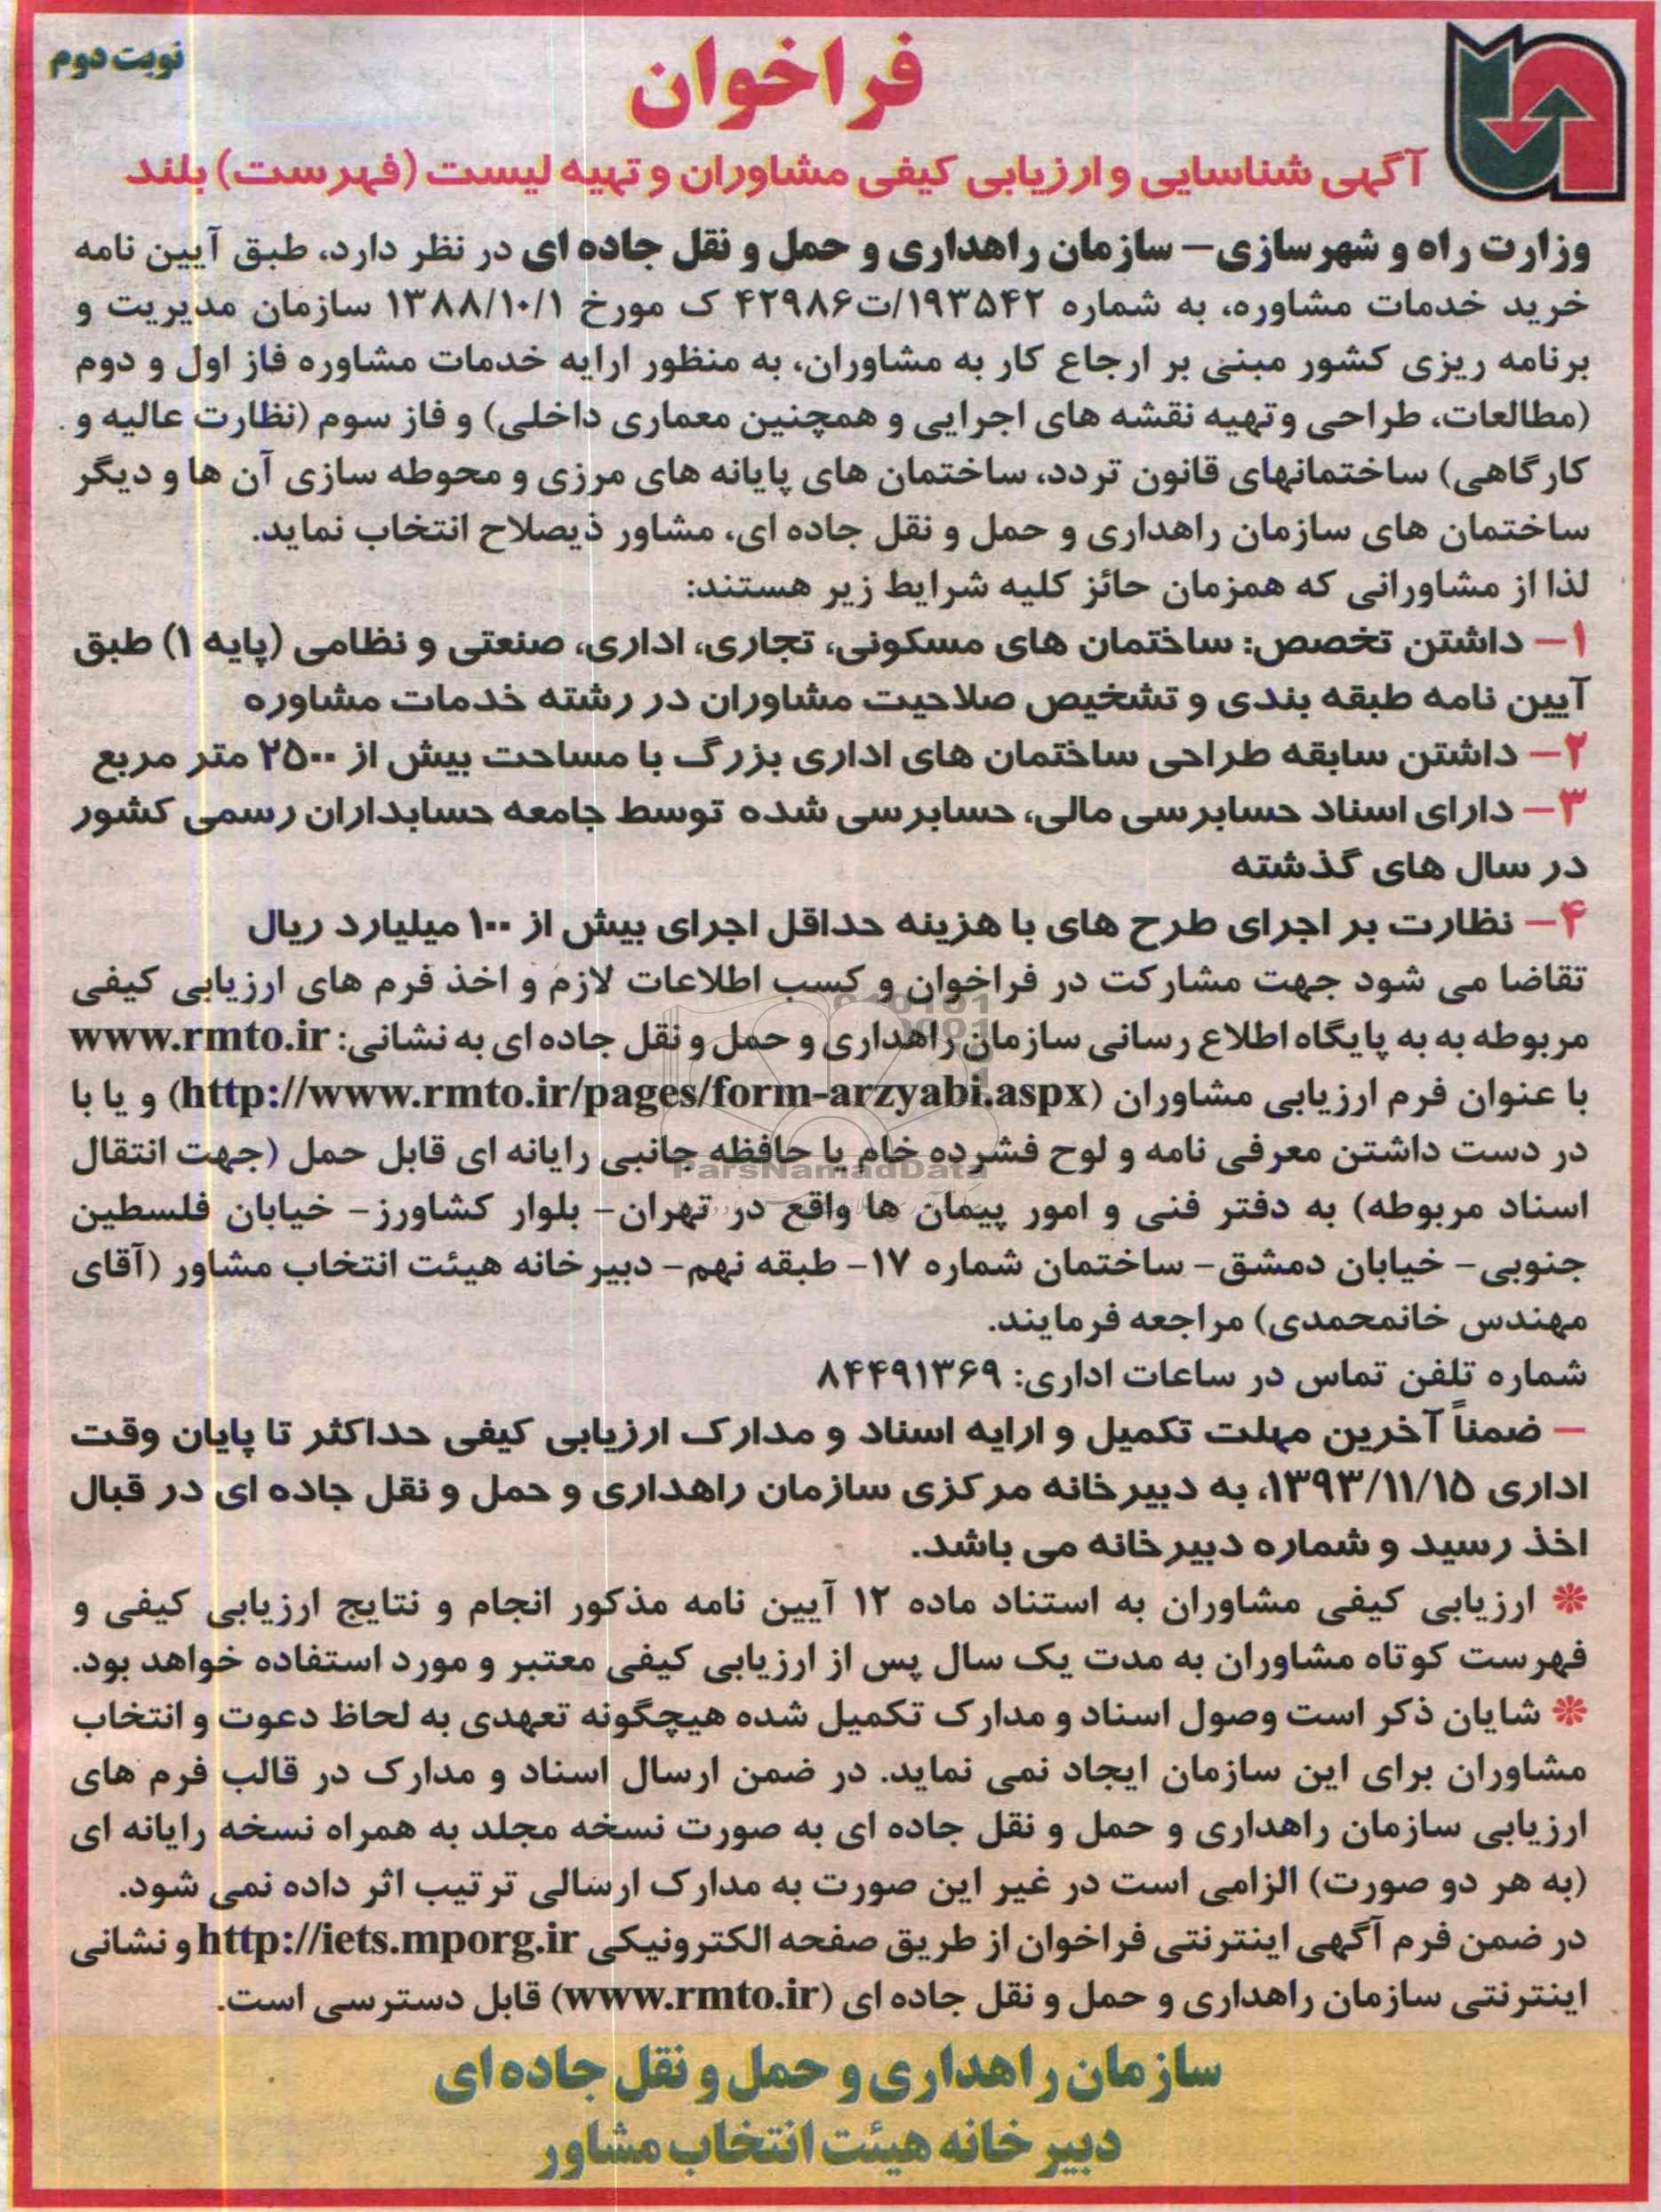 نوبت دوم
فراخوان
آگهی شناسایی و ارزیابی کیفی مشاوران و تهیه لیست (فهرست) بلند
وزارت راه و شهرسازی – سازمان راهداری و حمل و نقل جاده ای در نظر دارد، طبق آیین نامه
خرید خدمات مشاوره، به شماره ۱۹۳۵۴۲/ت۴۲۹۸۶ ک مورخ ۱۳۸۸/۱۰/۱ سازمان مدیریت و
برنامه ریزی کشور مبنی بر ارجاع کار به مشاوران، به منظور ارایه خدمات مشاوره فاز اول و دوم
(مطالعات، طراحی و تهیه نقشه های اجرایی و همچنین معماری داخلی) و فاز سوم (نظارت عالیه و
کارگاهی) ساختمانهای قانون تردد، ساختمان های پایانه های مرزی و محوطه سازی آن ها و دیگر
ساختمان های سازمان راهداری و حمل و نقل جاده ای، مشاور ذیصلاح انتخاب نماید.
لذا از مشاورانی که همزمان حائز کلیه شرایط زیر هستند:
۱– داشتن تخصص: ساختمان های مسکونی، تجاری، اداری، صنعتی و نظامی (پایه ۱) طبق
آیین نامه طبقه بندی و تشخیص صلاحیت مشاوران در رشته خدمات مشاوره
۲– داشتن سابقه طراحی ساختمان های اداری بزرگ با مساحت بیش از ۲۵۰۰ متر مربع
۳– دارای اسناد حسابرسی مالی، حسابرسی شده توسط جامعه حسابداران رسمی کشور
در سال های گذشته
۴– نظارت بر اجرای طرح های با هزینه حداقل اجرای بیش از ۱۰۰ میلیارد ریال
تقاضا می شود جهت مشارکت در فراخوان و کسب اطلاعات لازم و اخذ فرم های ارزیابی کیفی
مربوطه به به پایگاه اطلاع رسانی سازمان راهداری و حمل و نقل جاده ای به نشانی: www.rmto.ir
با عنوان فرم ارزیابی مشاوران (http://www.rmto.ir/pages/form-arzyabi.aspx) و یا با
در دست داشتن معرفی نامه و لوح فشرده خام یا حافظه جانبی رایانه ای قابل حمل (جهت انتقال
اسناد مربوطه) به دفتر فنی و امور پیمان ها واقع در تهران- بلوار کشاورز- خیابان فلسطین
جنوبی- خیابان دمشق- ساختمان شماره ۱۷- طبقه نهم- دبیرخانه هیئت انتخاب مشاور (آقای
مهندس خانمحمدی) مراجعه فرمایند.
شماره تلفن تماس در ساعات اداری: ۸۴۴۹۱۳۶۹
– ضمناً آخرین مهلت تکمیل و ارایه اسناد و مدارک ارزیابی کیفی حداکثر تا پایان وقت
اداری ۱۳۹۳/۱۱/۱۵، به دبیرخانه مرکزی سازمان راهداری و حمل و نقل جاده ای در قبال
اخذ رسید و شماره دبیرخانه می باشد.
* ارزیابی کیفی مشاوران به استناد ماده ۱۲ آیین نامه مذکور انجام و نتایج ارزیابی کیفی و
فهرست کوتاه مشاوران به مدت یک سال پس از ارزیابی کیفی معتبر و مورد استفاده خواهد بود.
* شایان ذکر است وصول اسناد و مدارک تکمیل شده هیچگونه تعهدی به لحاظ دعوت و انتخاب
مشاوران برای این سازمان ایجاد نمی نماید. در ضمن ارسال اسناد و مدارک در قالب فرم های
ارزیابی سازمان راهداری و حمل و نقل جاده ای به صورت نسخه مجلد به همراه نسخه رایانه ای
(به هر دو صورت) الزامی است در غیر این صورت به مدارک ارسالی ترتیب اثر داده نمی شود.
در ضمن فرم آگهی اینترنتی فراخوان از طریق صفحه الکترونیکی http://iets.mporg.ir و نشانی
اینترنتی سازمان راهداری و حمل و نقل جاده ای (www.rmto.ir) قابل دسترسی است.
سازمان راهداری و حمل و نقل جاده ای
دبیرخانه هیئت انتخاب مشاور
ParsNamadData